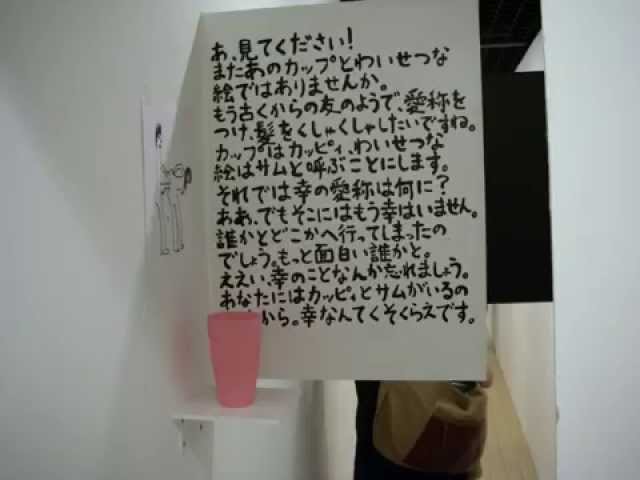 あ、見てください!
またあのカップとわいせつな
絵ではありませんか。
もう古くからの友のようで、愛称を
つけ、髪をくしゃくしゃしたいですね。
カップはカッピィ、わいせつな
絵はサムと呼ぶことにします。
それでは幸の愛称は何に?
ああ、でもそこにはもう幸はいません。
誰かとどこかへ行ってしまったの
でしょう。もっと面白い誰かと。
ええい、幸のことなんか忘れましょう。
あなたにはカッピィとサムがいるの
から。幸なんてくそくらえです。